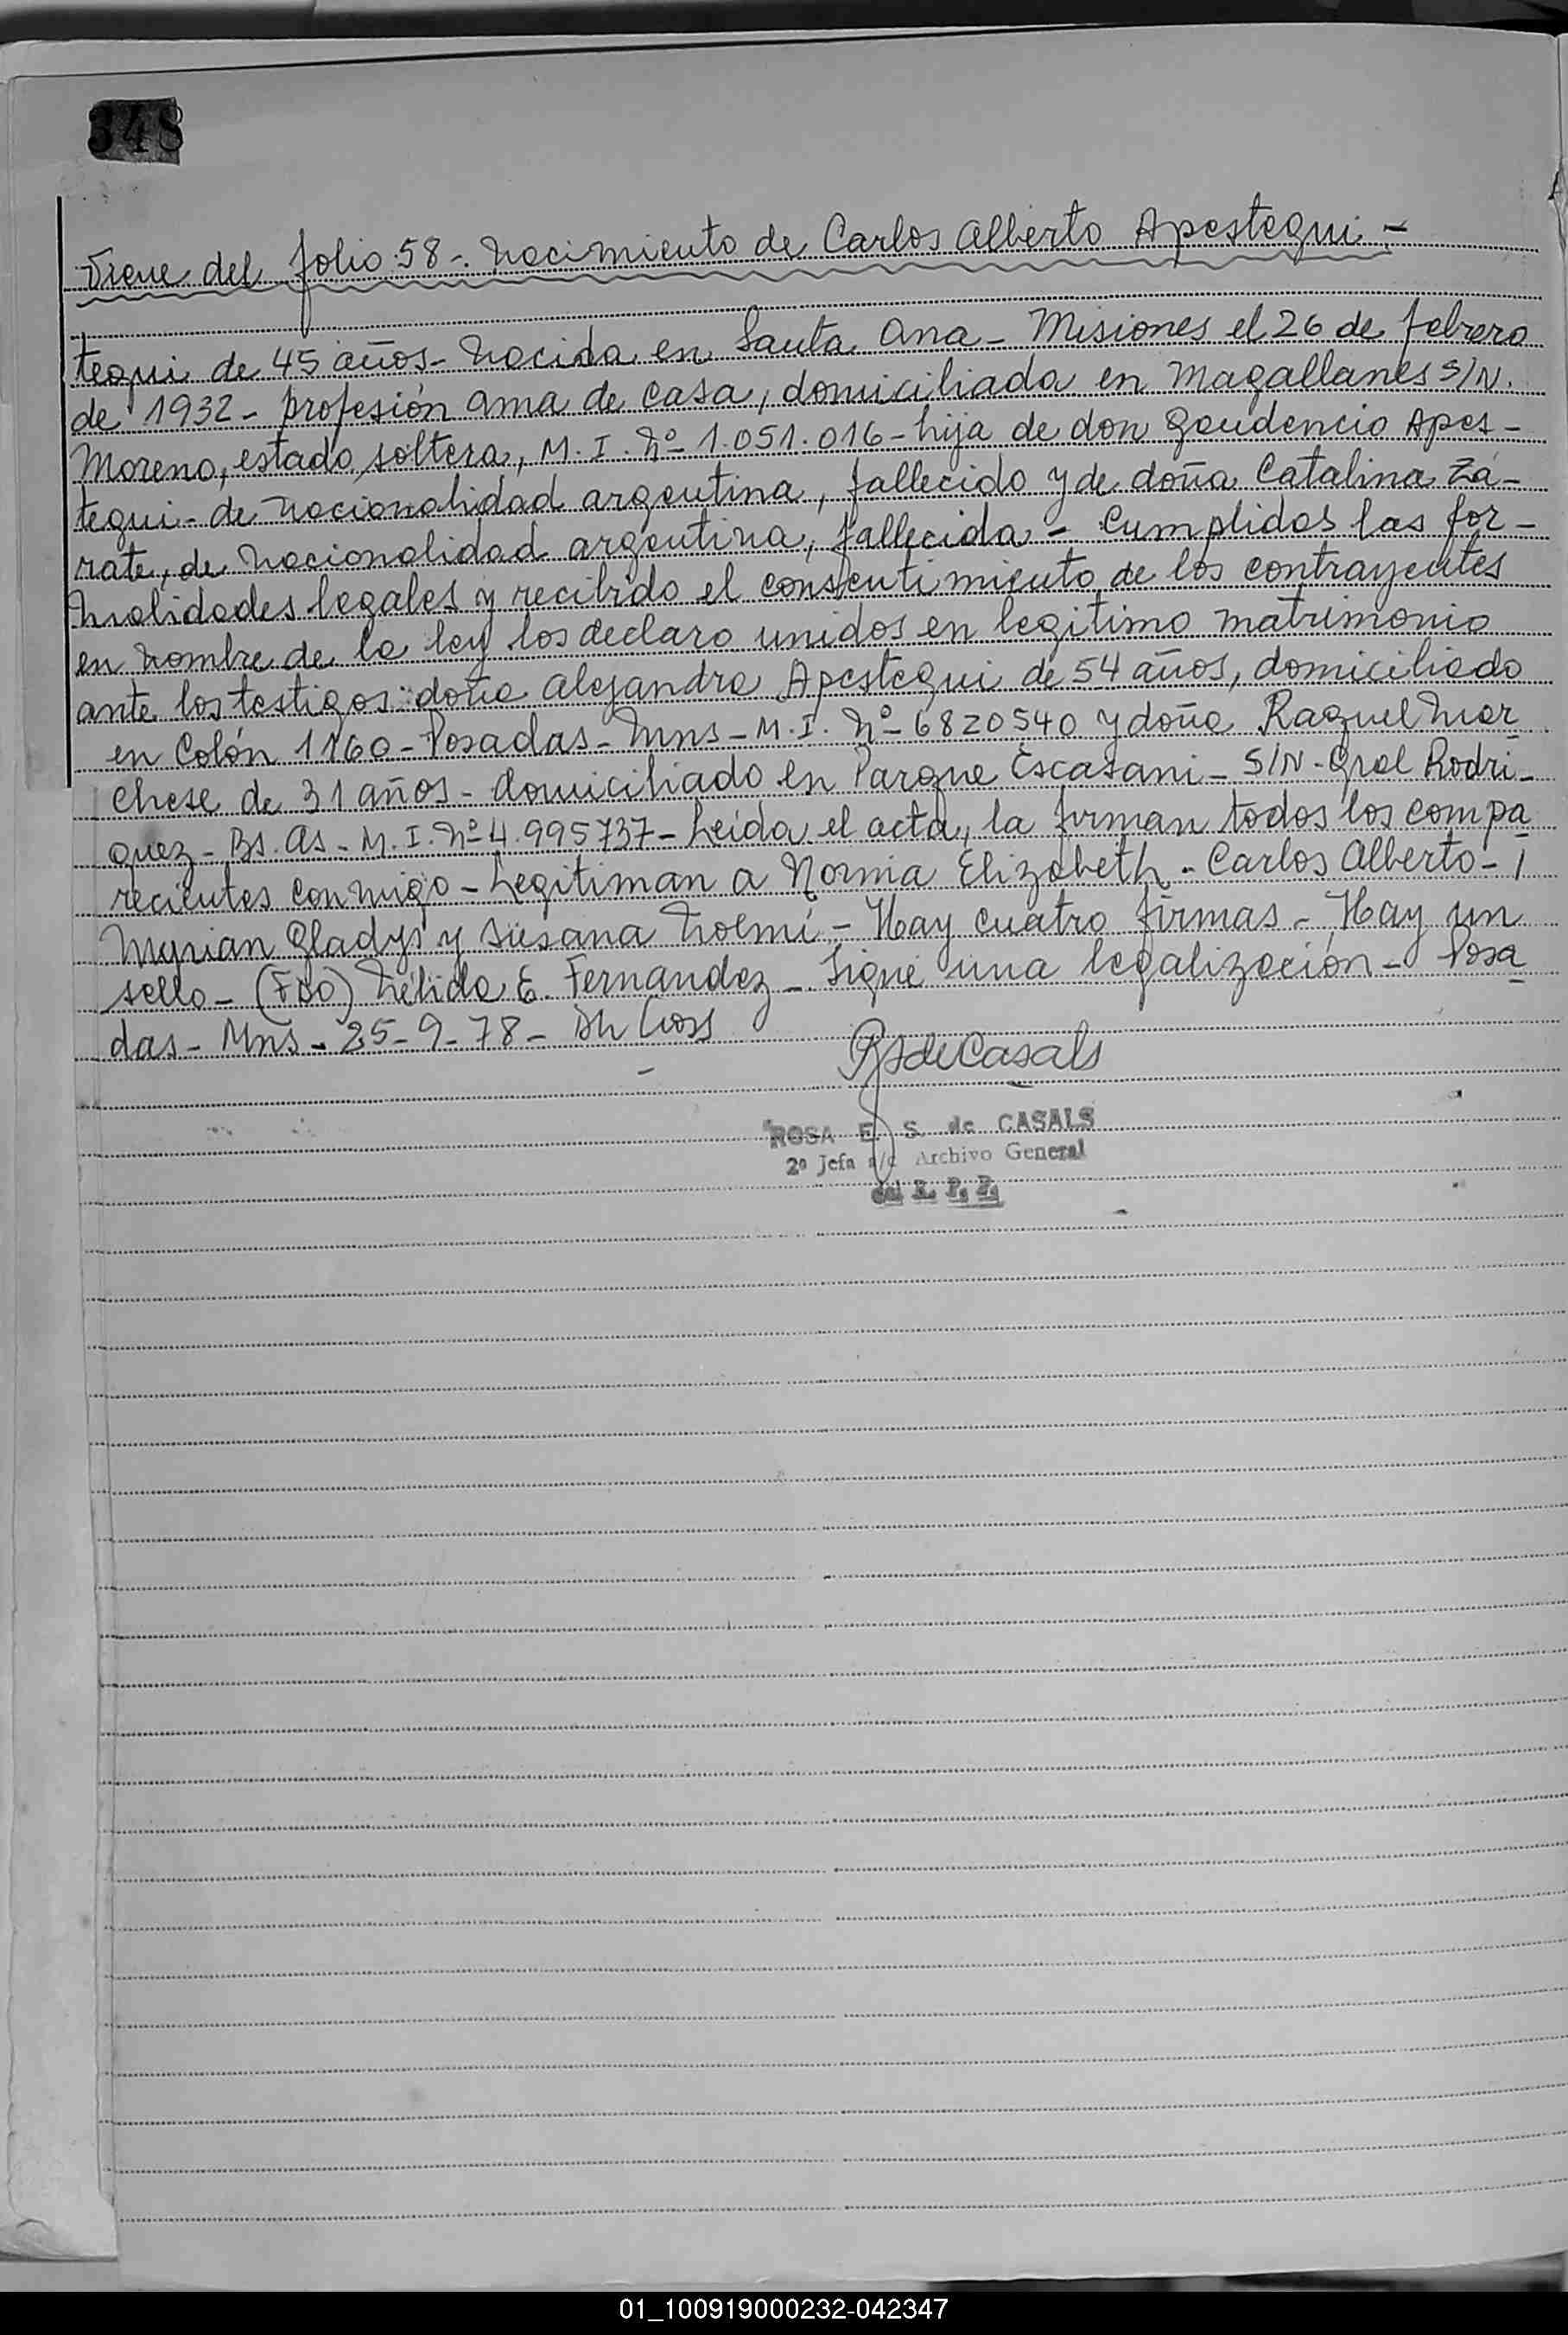 348
Viene del folio 58-. Nacimiento de Carlos Alberto Apestegui.-
tegui de 45 años- Nacida en Santa Ana- Misiones el 26 de febrero
de 1932- profesión ama de casa, domiciliada en Magallanes S/N.
Moreno, estado soltera, M. I. Nº 1.051.016- hija de don Gaudencio Apes-
tegui- de nacionalidad argentina, fallecido y de doña Catalina Zá-
rate, de nacionalidad argentina, fallecida- Cumplidas las for-
malidades legales y recibido el consentimiento de los contrayentes
en nombre de la ley los declaro unidos en legitimo matrimonio
ante los testigos: doña Alejandra Apestegui de 54 años, domiciliado
en Colón 1160- Posadas- Mns- M. I. Nº 6820540 y doña Raquel Mar
chese de 31 años- domiciliado en Parque Escasani- S/N- Gral Rodri-
guez- Bs. As- M. I. Nº 4.995737- Leída el acta, la firman todos los compa
recientes conmigo- Legitiman a Norma Elizabeth- Carlos Alberto-
Myrian Gladys y Susana Noemí- Hay cuatro firmas- Hay un
sello- (Fdo) Nélida E. Fernandez- Sigue una legalización- Posa
das- Mns- 25-9-78-
RSdeCasals
ROSA E. S. de CASALS
2ª Jefa a/c Archivo General
del R. P. P.
01_100919000232-042347